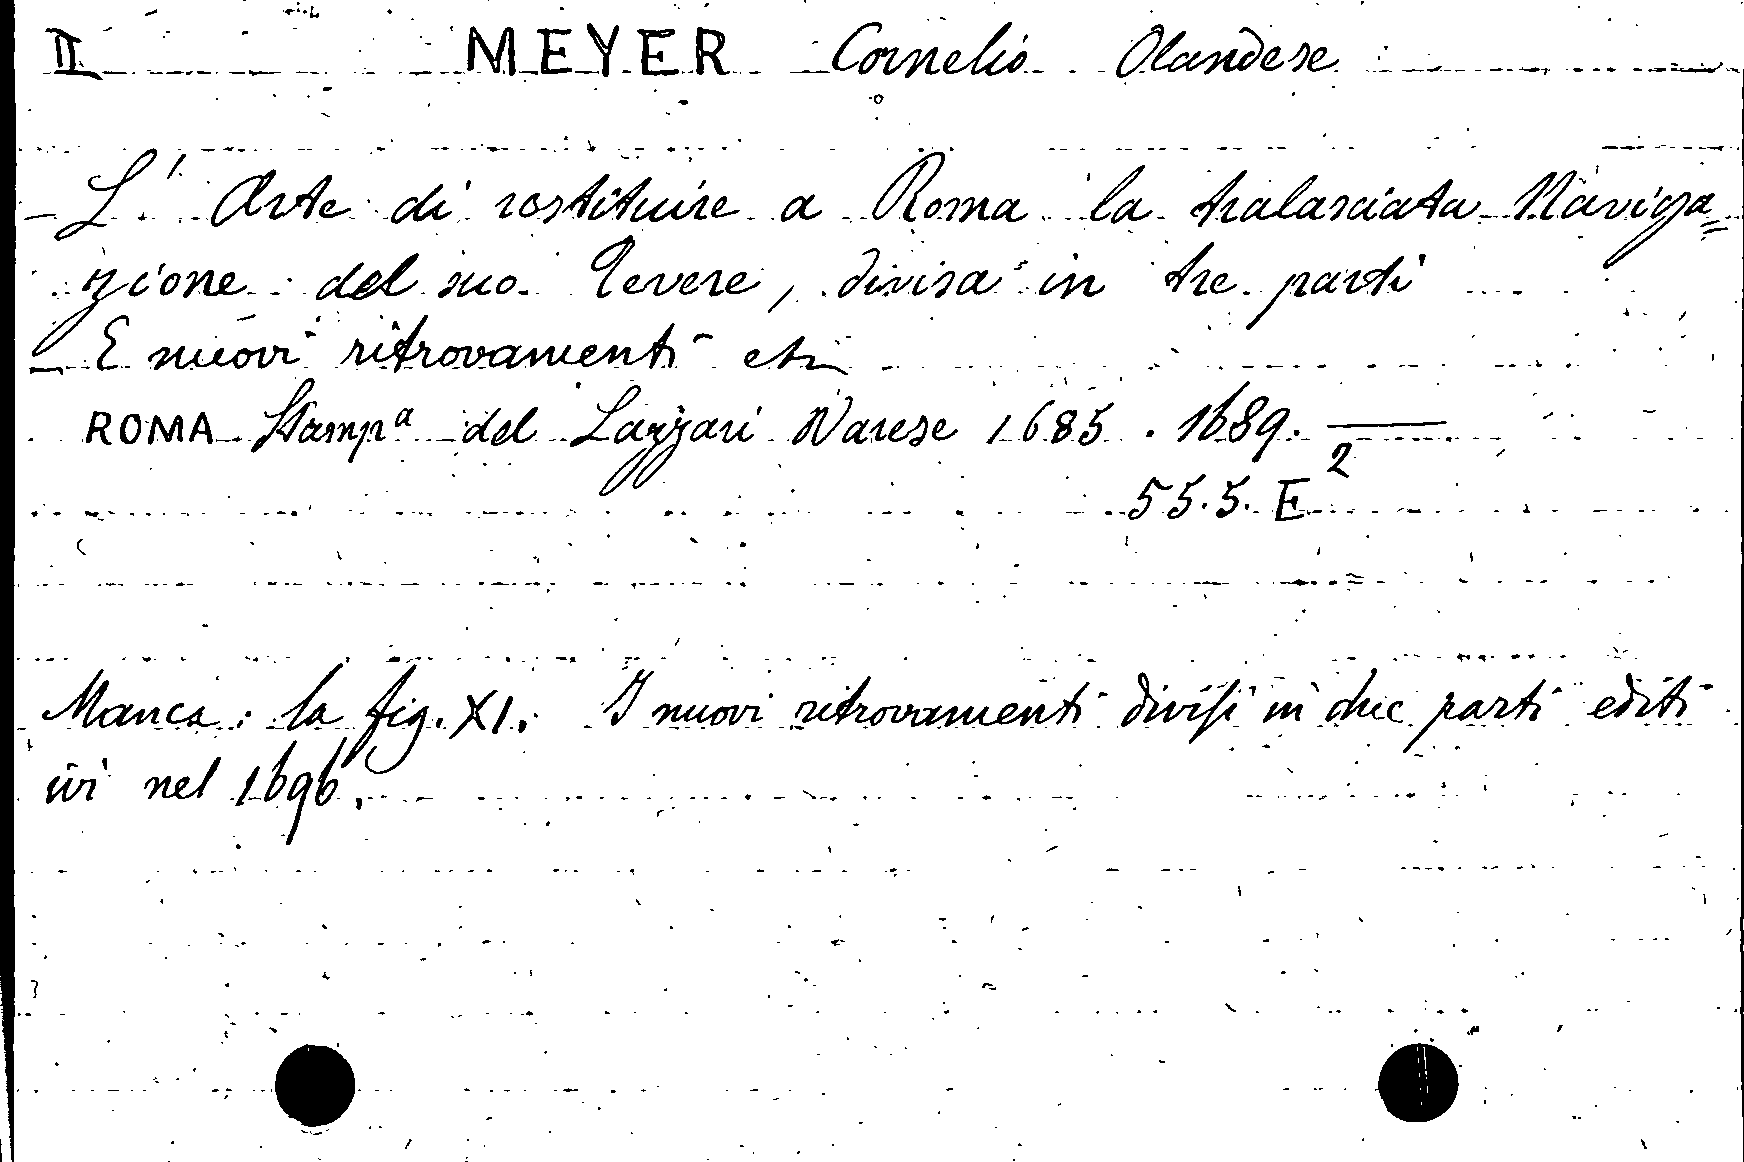 II MEYER Cornelio Olandese
L' Arte di restituire a Roma la tralasciata Naviga=
zione del suo Tevere, divisa in tre parti
E nuovi ritrovamenti etc
ROMA Stampª del Lazzari Varese 1685 . 1689. —
2
55.5. E
Manca: la fig. XI. I nuovi ritrovamenti divisi in due parti editi
ivi nel 1696.